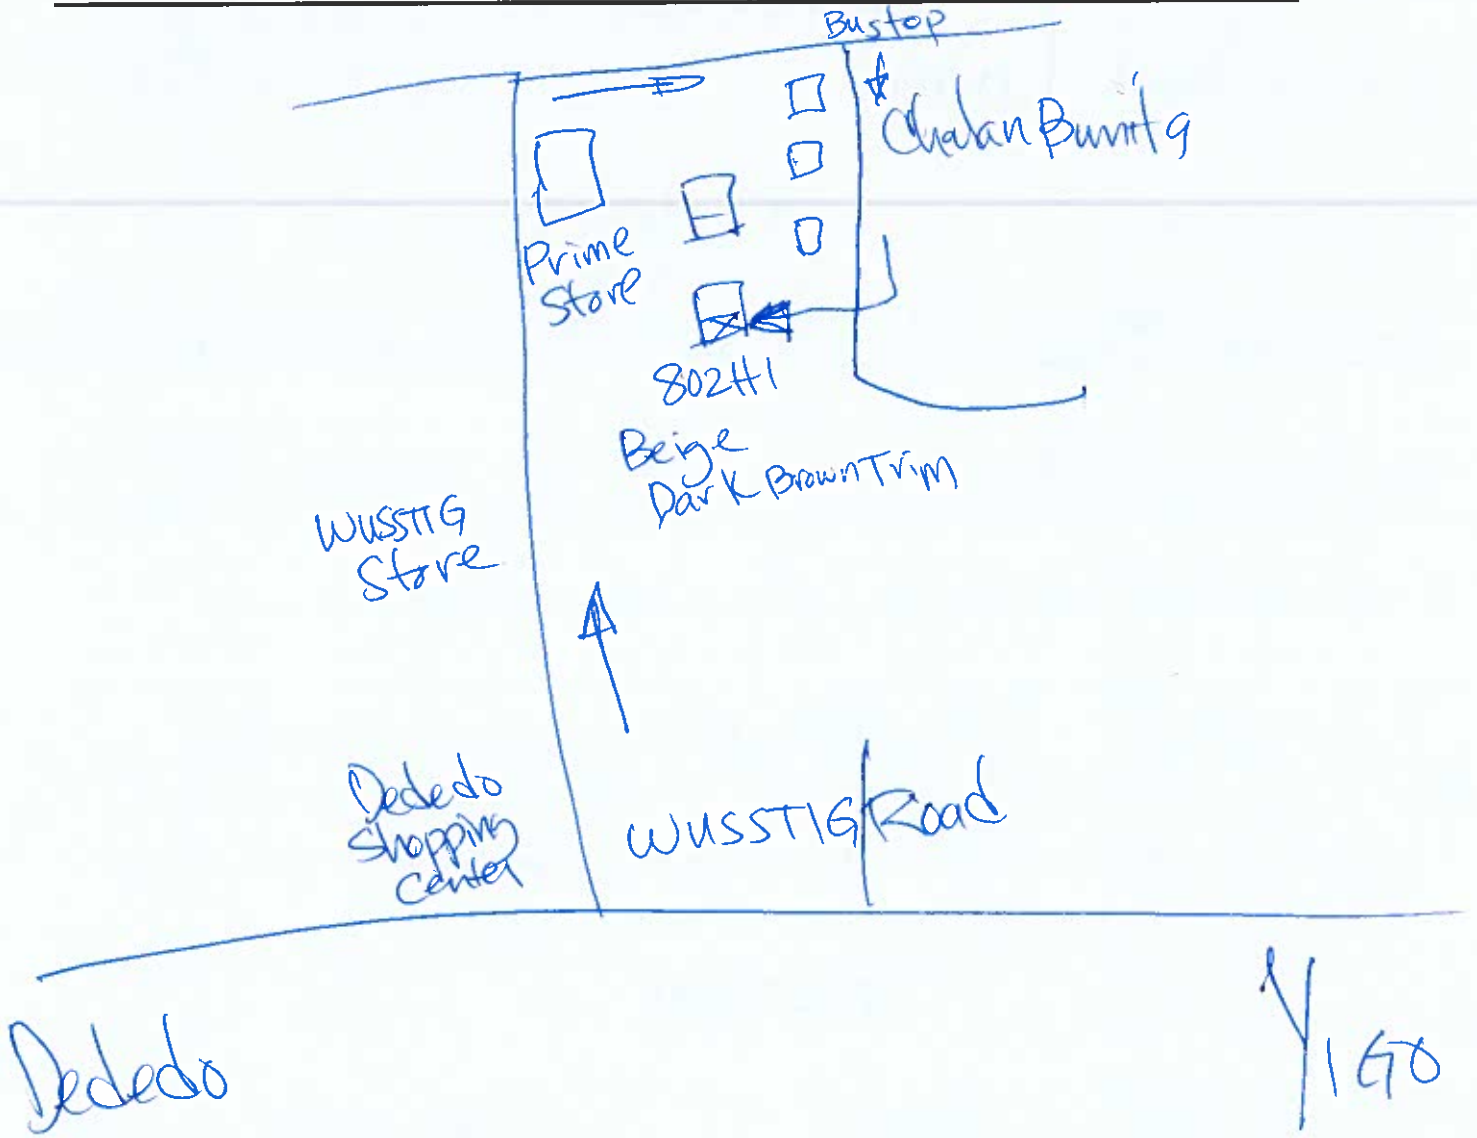 Bustop
Chalan Bunita
Prime
Store
802H1
Beige
Dark Brown Trim
WUSSTIG
Store
Dededo
Shopping
Center
WUSSTIG Road
Dededo
YIGO